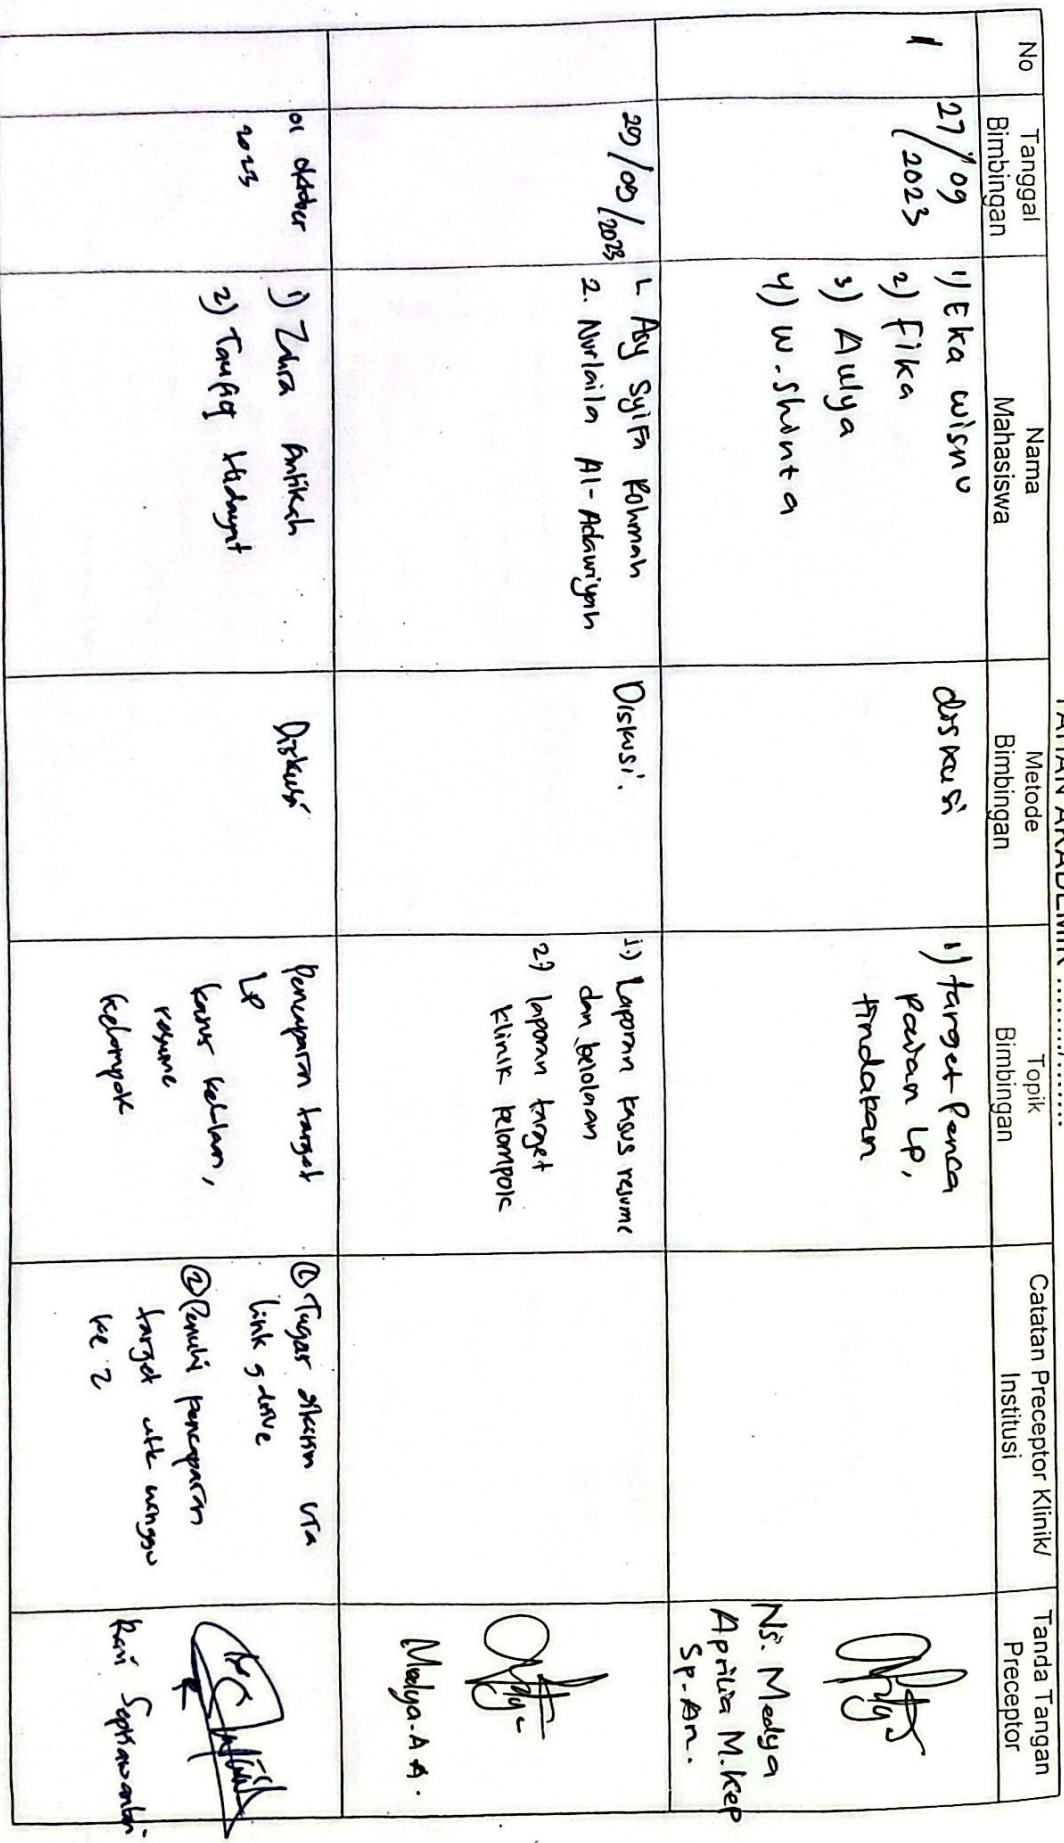 TAHAN AKADEMIK ........./.........
No
Tanggal
Bimbingan
Nama
Mahasiswa
Metode
Bimbingan
Topik
Bimbingan
Catatan Preceptor Klinik/
Institusi
Tanda Tangan
Preceptor
1
27/09
/2023
1) Eka wisnu
2) Fika
3) Aulya
4) W. Shinta
diskusi
1) target penca
paian LP,
tindakan
Ns. Medya
Aprilia M.Kep
Sp. An.
29/09/2023
1. Asy Syifa Rohmah
2. Nurlaila Al-Adawiyah
Diskusi.
1) Laporan kasus resume
dan kelolaan
2) laporan target
klinik kelompok
Medya. A A.
01 oktober
2023
1) Zahra Antikah
2) Taufiq Hidayat
Diskusi
Pencapaian target
LP
kasus kelolaan,
resume
kelompok
① Tugas dikirim via
link gdrive
② Penuhi pencapaian
target utk minggu
ke 2
Rani Septiawantari